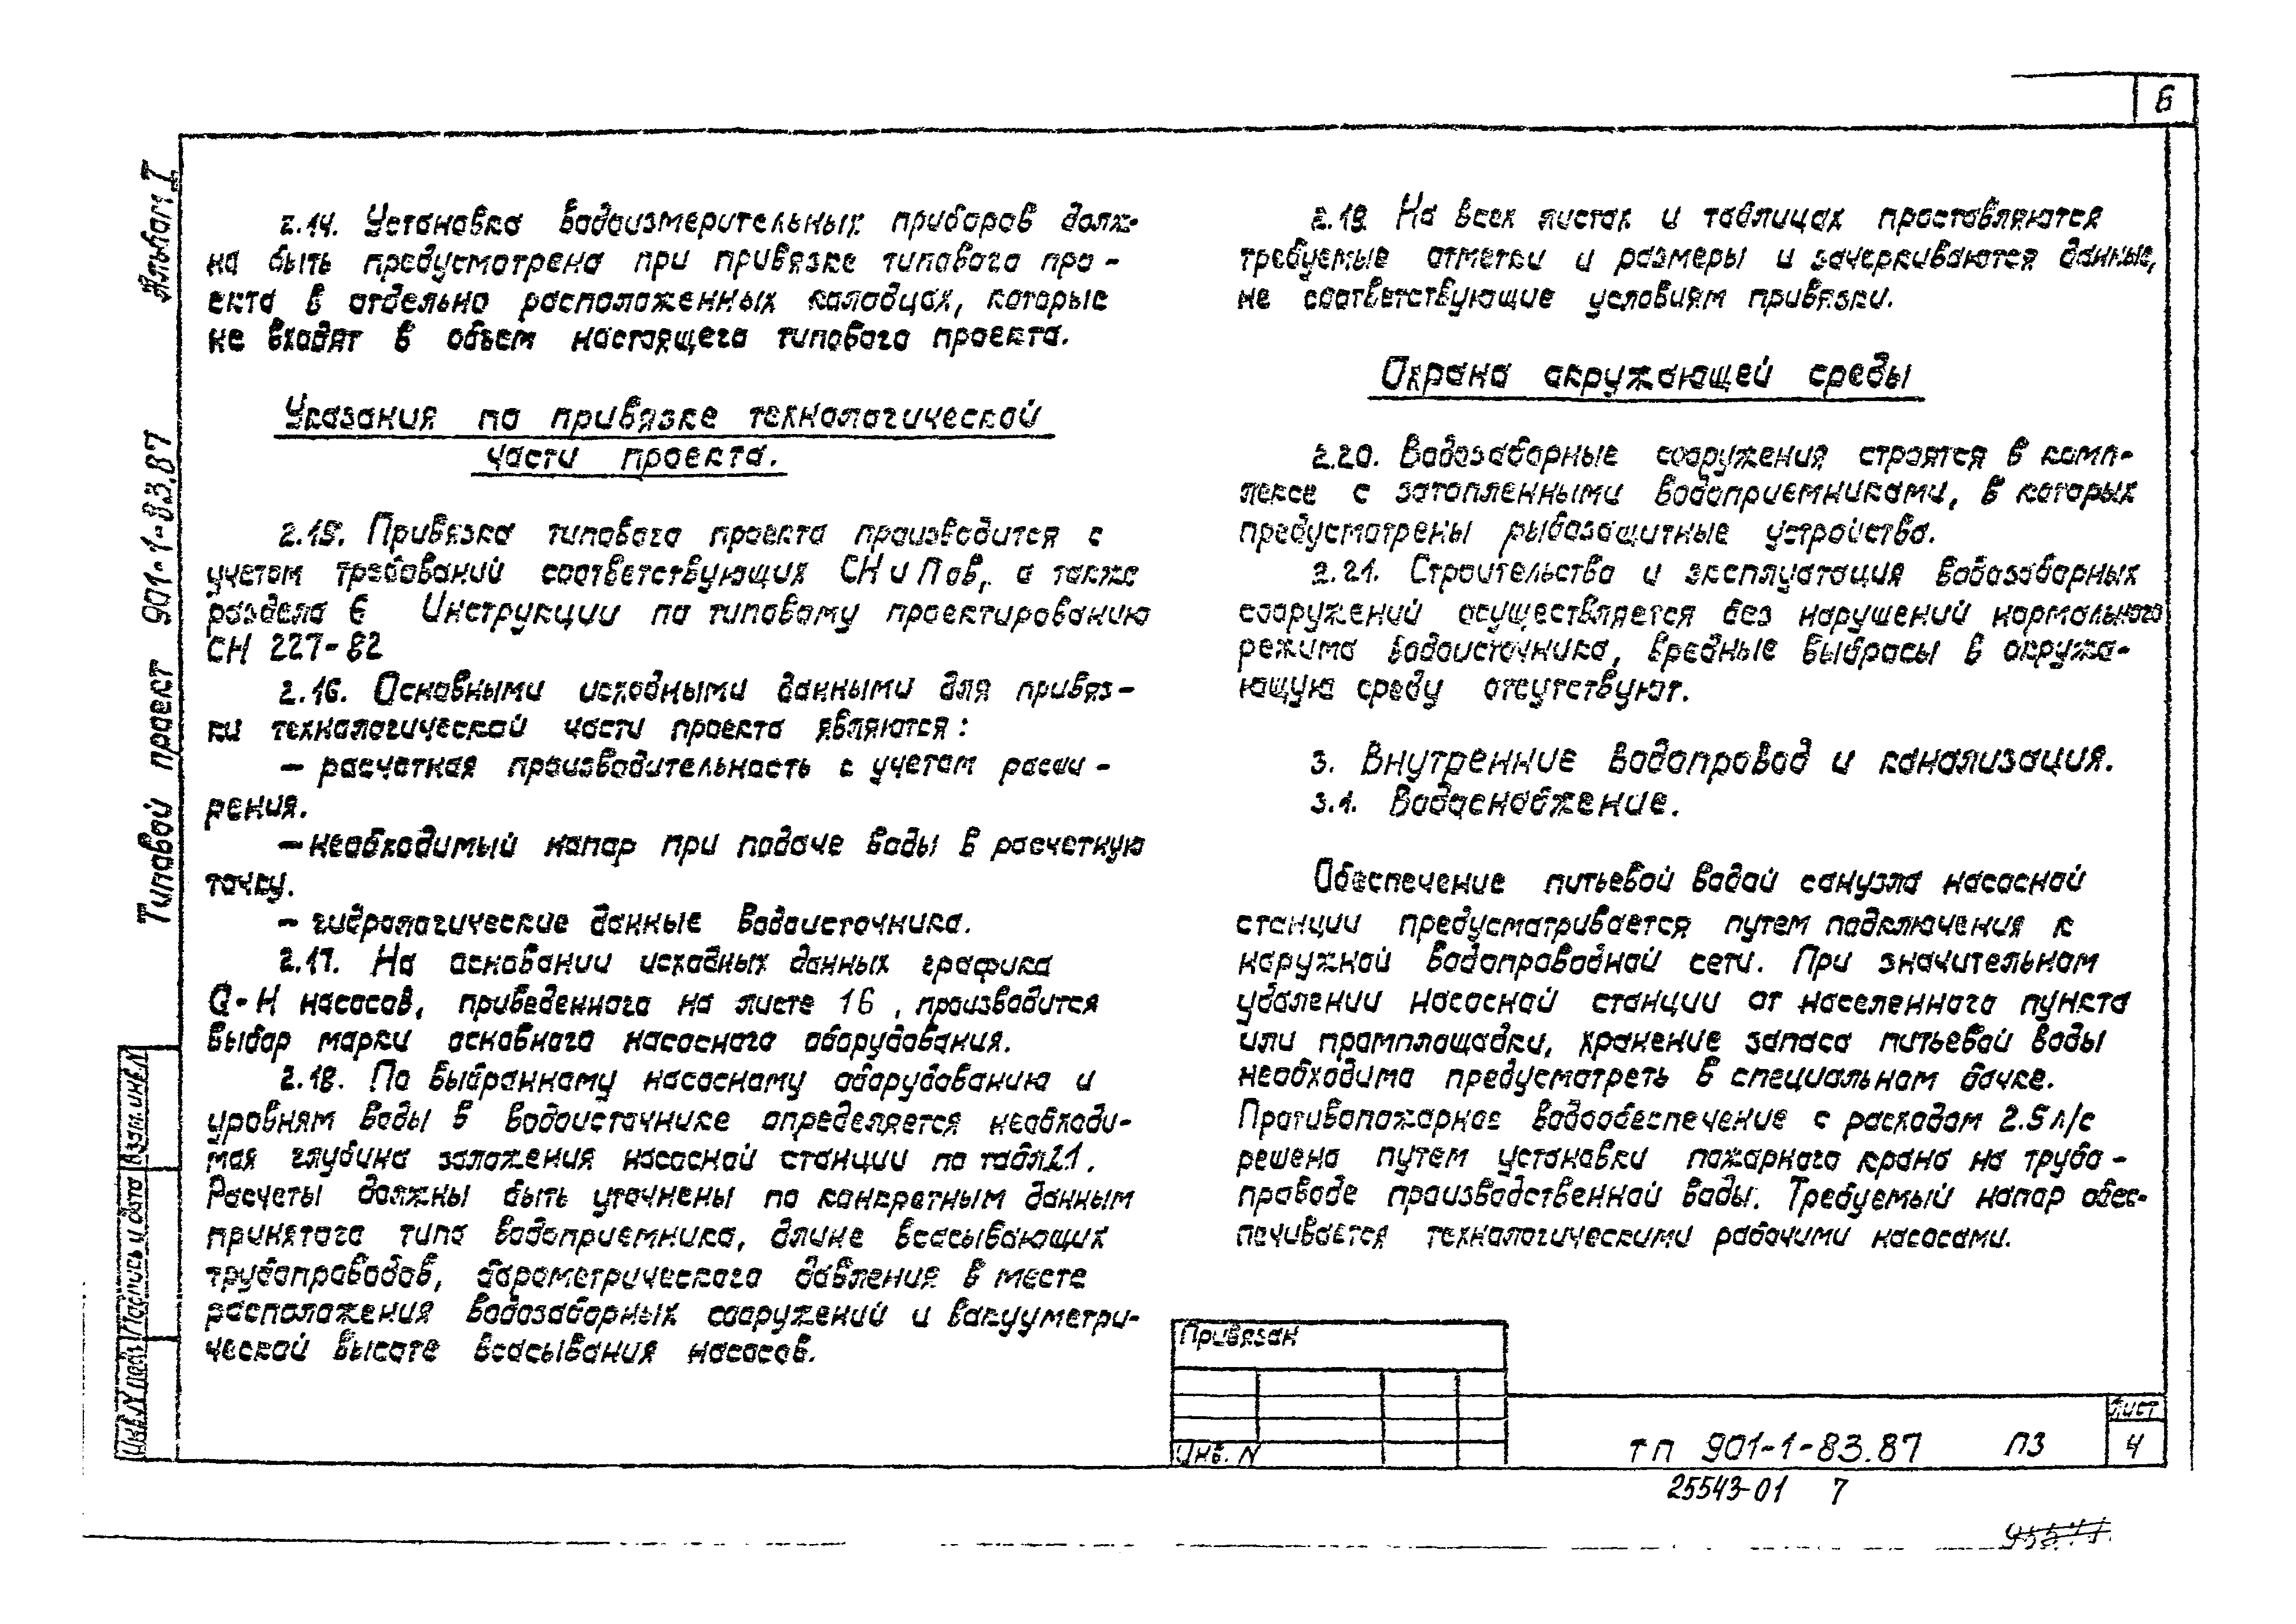 6
Альбом I
Типовой проект 901-1-83.87
2.14. Установка водоизмерительных приборов долж-
на быть предусмотрена при привязке типового про-
екта в отдельно расположенных колодцах, которые
не входят в объем настоящего типового проекта.
Указания по привязке технологической
части проекта.
2.15. Привязка типового проекта производится с
учетом требований соответствующих СН и Пов, а также
раздела 6 Инструкции по типовому проектированию
СН 227-82
2.16. Основными исходными данными для привяз-
ки технологической части проекта являются:
— расчетная производительность с учетом расши-
рения.
— необходимый напор при подаче воды в расчетную
точку.
— гидрологические данные водоисточника.
2.17. На основании исходных данных графика
Q-H насосов, приведенного на листе 16, производится
выбор марки основного насосного оборудования.
2.18. По выбранному насосному оборудованию и
уровням воды в водоисточнике определяется необходи-
мая глубина заложения насосной станции по табл.2.1.
Расчеты должны быть уточнены по конкретным данным
принятого типа водоприемника, длине всасывающих
трубопроводов, барометрического давления в месте
расположения водозаборных сооружений и вакууметри-
ческой высоте всасывания насосов.
2.19. На всех листах и таблицах проставляются
требуемые отметки и размеры и зачеркиваются данные,
не соответствующие условиям привязки.
Охрана окружающей среды
2.20. Водозаборные сооружения строятся в комп-
лексе с затопленными водоприемниками, в которых
предусмотрены рыбозащитные устройства.
2.21. Строительство и эксплуатация водозаборных
сооружений осуществляется без нарушений нормального
режима водоисточника, вредные выбросы в окружа-
ющую среду отсутствуют.
3. Внутренние водопровод и канализация.
3.1. Водоснабжение.
Обеспечение питьевой водой санузла насосной
станции предусматривается путем подключения к
наружной водопроводной сети. При значительном
удалении насосной станции от населенного пункта
или промплощадки, хранение запаса питьевой воды
необходимо предусмотреть в специальном бочке.
Противопожарное водообеспечение с расходом 2.5 л/с
решено путем установки пожарного крана на трубо-
проводе производственной воды. Требуемый напор обес-
печивается технологическими рабочими насосами.
Взам. инв. N
Подпись и дата
Инв. N подл
Привязан
Инв. N
ТП 901-1-83.87 ПЗ
Лист
4
25543-01 7